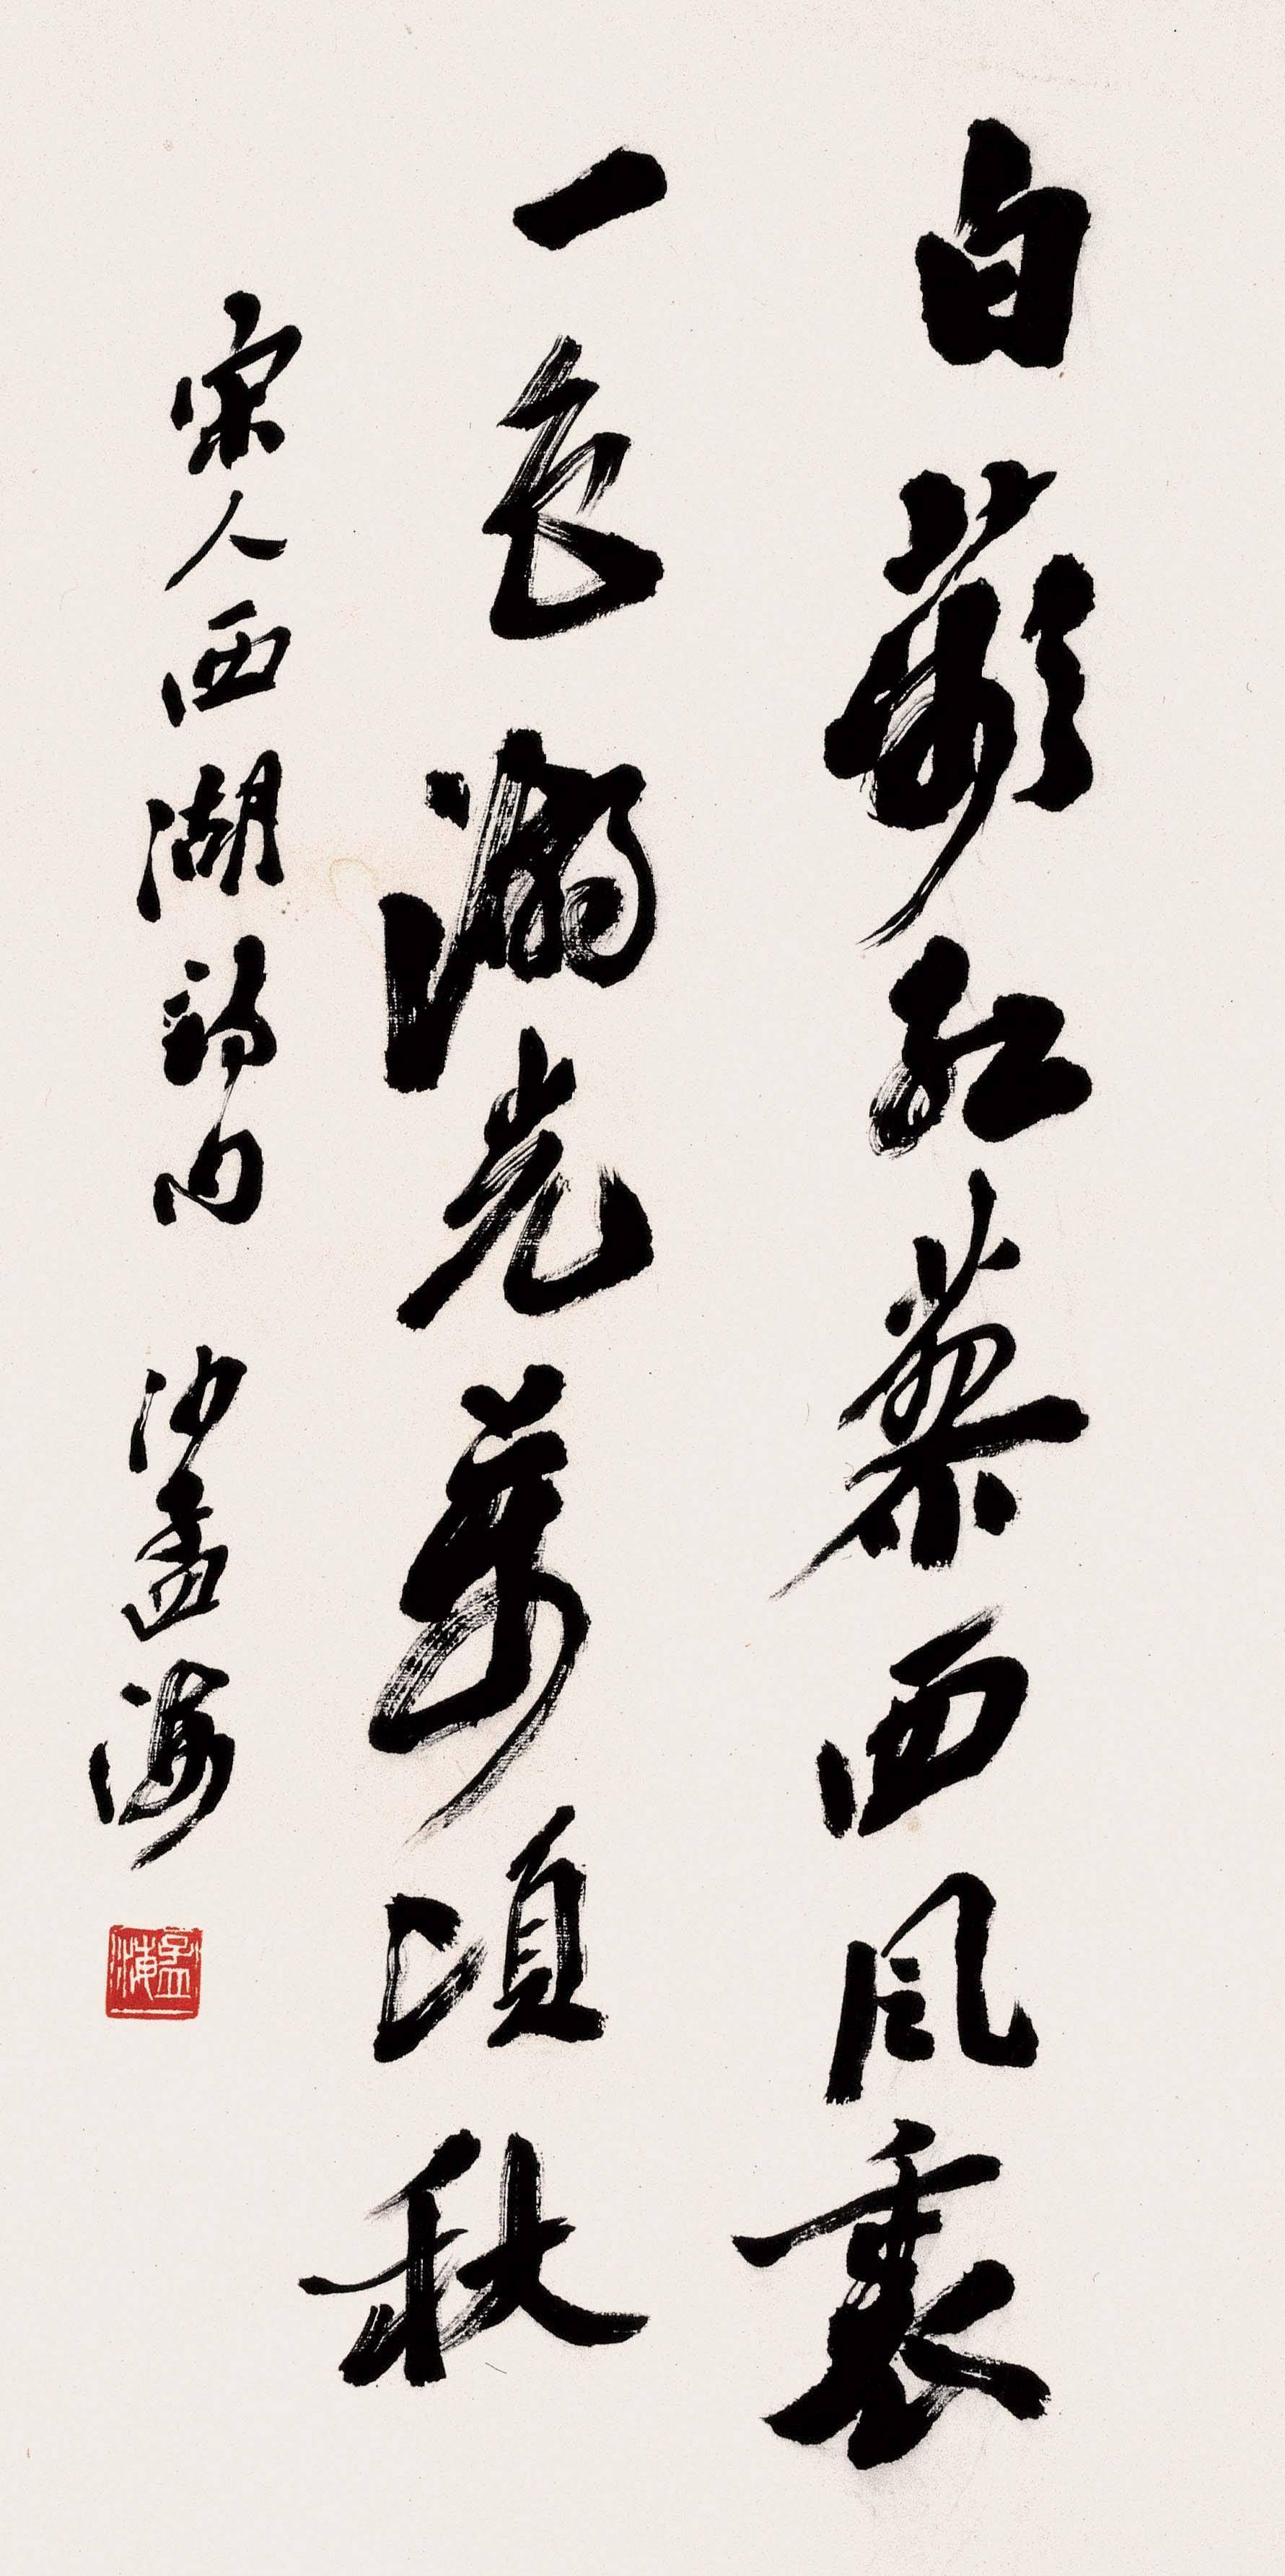 白蘋紅蓼西風裏
一色湖光萬頃秋
宋人西湖詩句 沙孟海
孟海